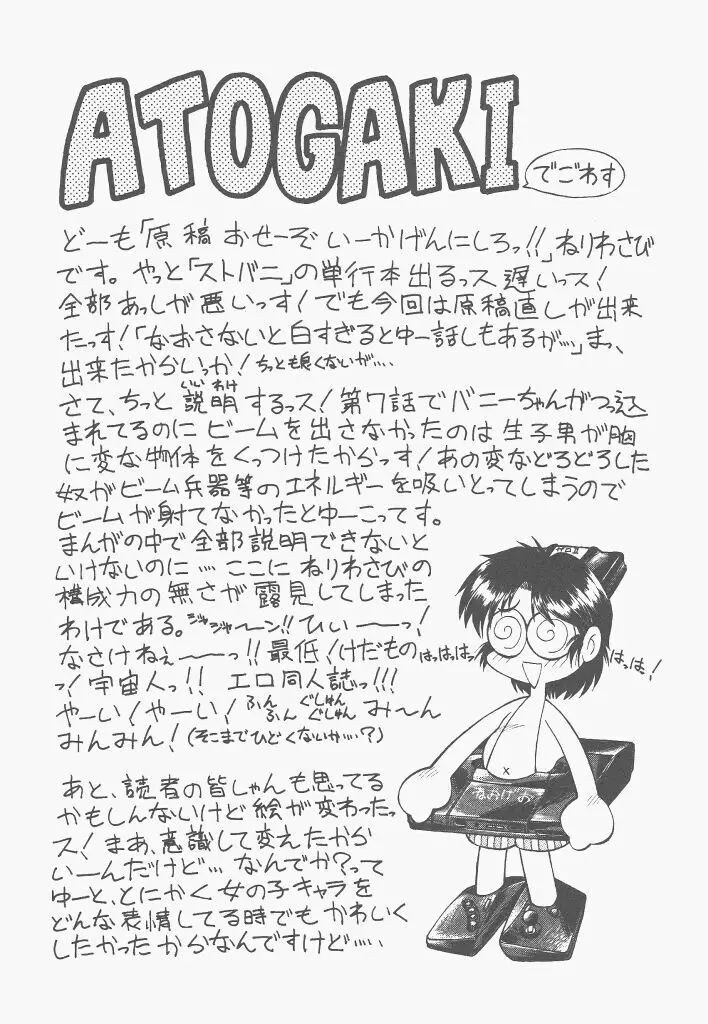 ATOGAKI
でごわす
どーも「原稿おせーぞいーかげんにしろっ!!」ねりわさび
です。やっと「ストバニ」の単行本出るっス遅いっス!
全部あっしが悪いっす!でも今回は原稿直しが出来
たっす!「なおさないと白すぎるとゆー話しもあるが…」まっ、
出来たからいっか!ちっとも良くないが….
さて、ちっと説明するっス!第7話でバニーちゃんがつっ込
いいわけ
まれてるのにビームを出さなかったのは生子男が胸
に変な物体をくっつけたからっす!あの変などろどろした
奴がビーム兵器等のエネルギーを吸いとってしまうので
ビームが射てなかったとゆーこってす。
まんがの中で全部説明できないと
いけないのに…ここにねりわさびの
構成力の無さが露見してしまった
わけである。ジャジャ〜ン!!ひぃーーっ!
なさけねぇ〜〜っ!!最低!けだもの
っ!宇宙人っ!!エロ同人誌っ!!!
やーい!やーい!ふんふんぐしゅんぐしゅんみ〜ん
みんみん!(そこまでひどくないか…?)
はっはっはっ
はっは!
あと、読者の皆しゃんも思ってる
かもしんないけど絵が変わったっ
ス!まあ、意識して変えたから
いーんだけど…なんでか?って
ゆーと、とにかく女の子キャラを
どんな表情してる時でもかわいく
したかったからなんですけど….
ねおげお